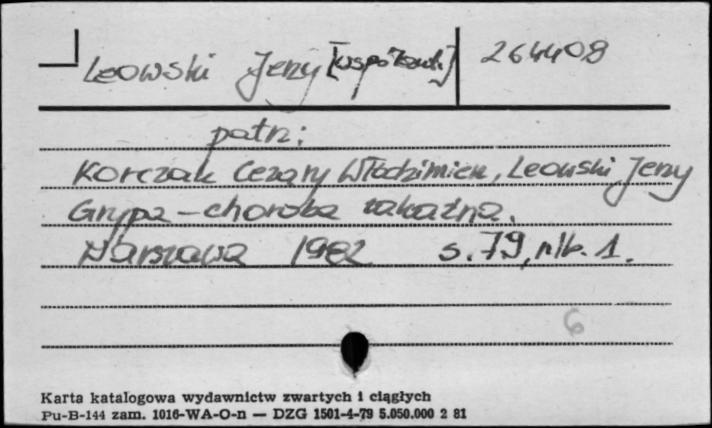 Leowski Jerzy [współaut.] 264408
patrz:
Korczak Cezary Włodzimierz, Leowski Jerzy
Grypa - choroba zakaźna.
Warszawa 1982 s. 79, nlb. 1.
6
Karta katalogowa wydawnictw zwartych i ciągłych
Pu-B-144 zam. 1016-WA-O-n — DZG 1501-4-79 5.050.000 2 81